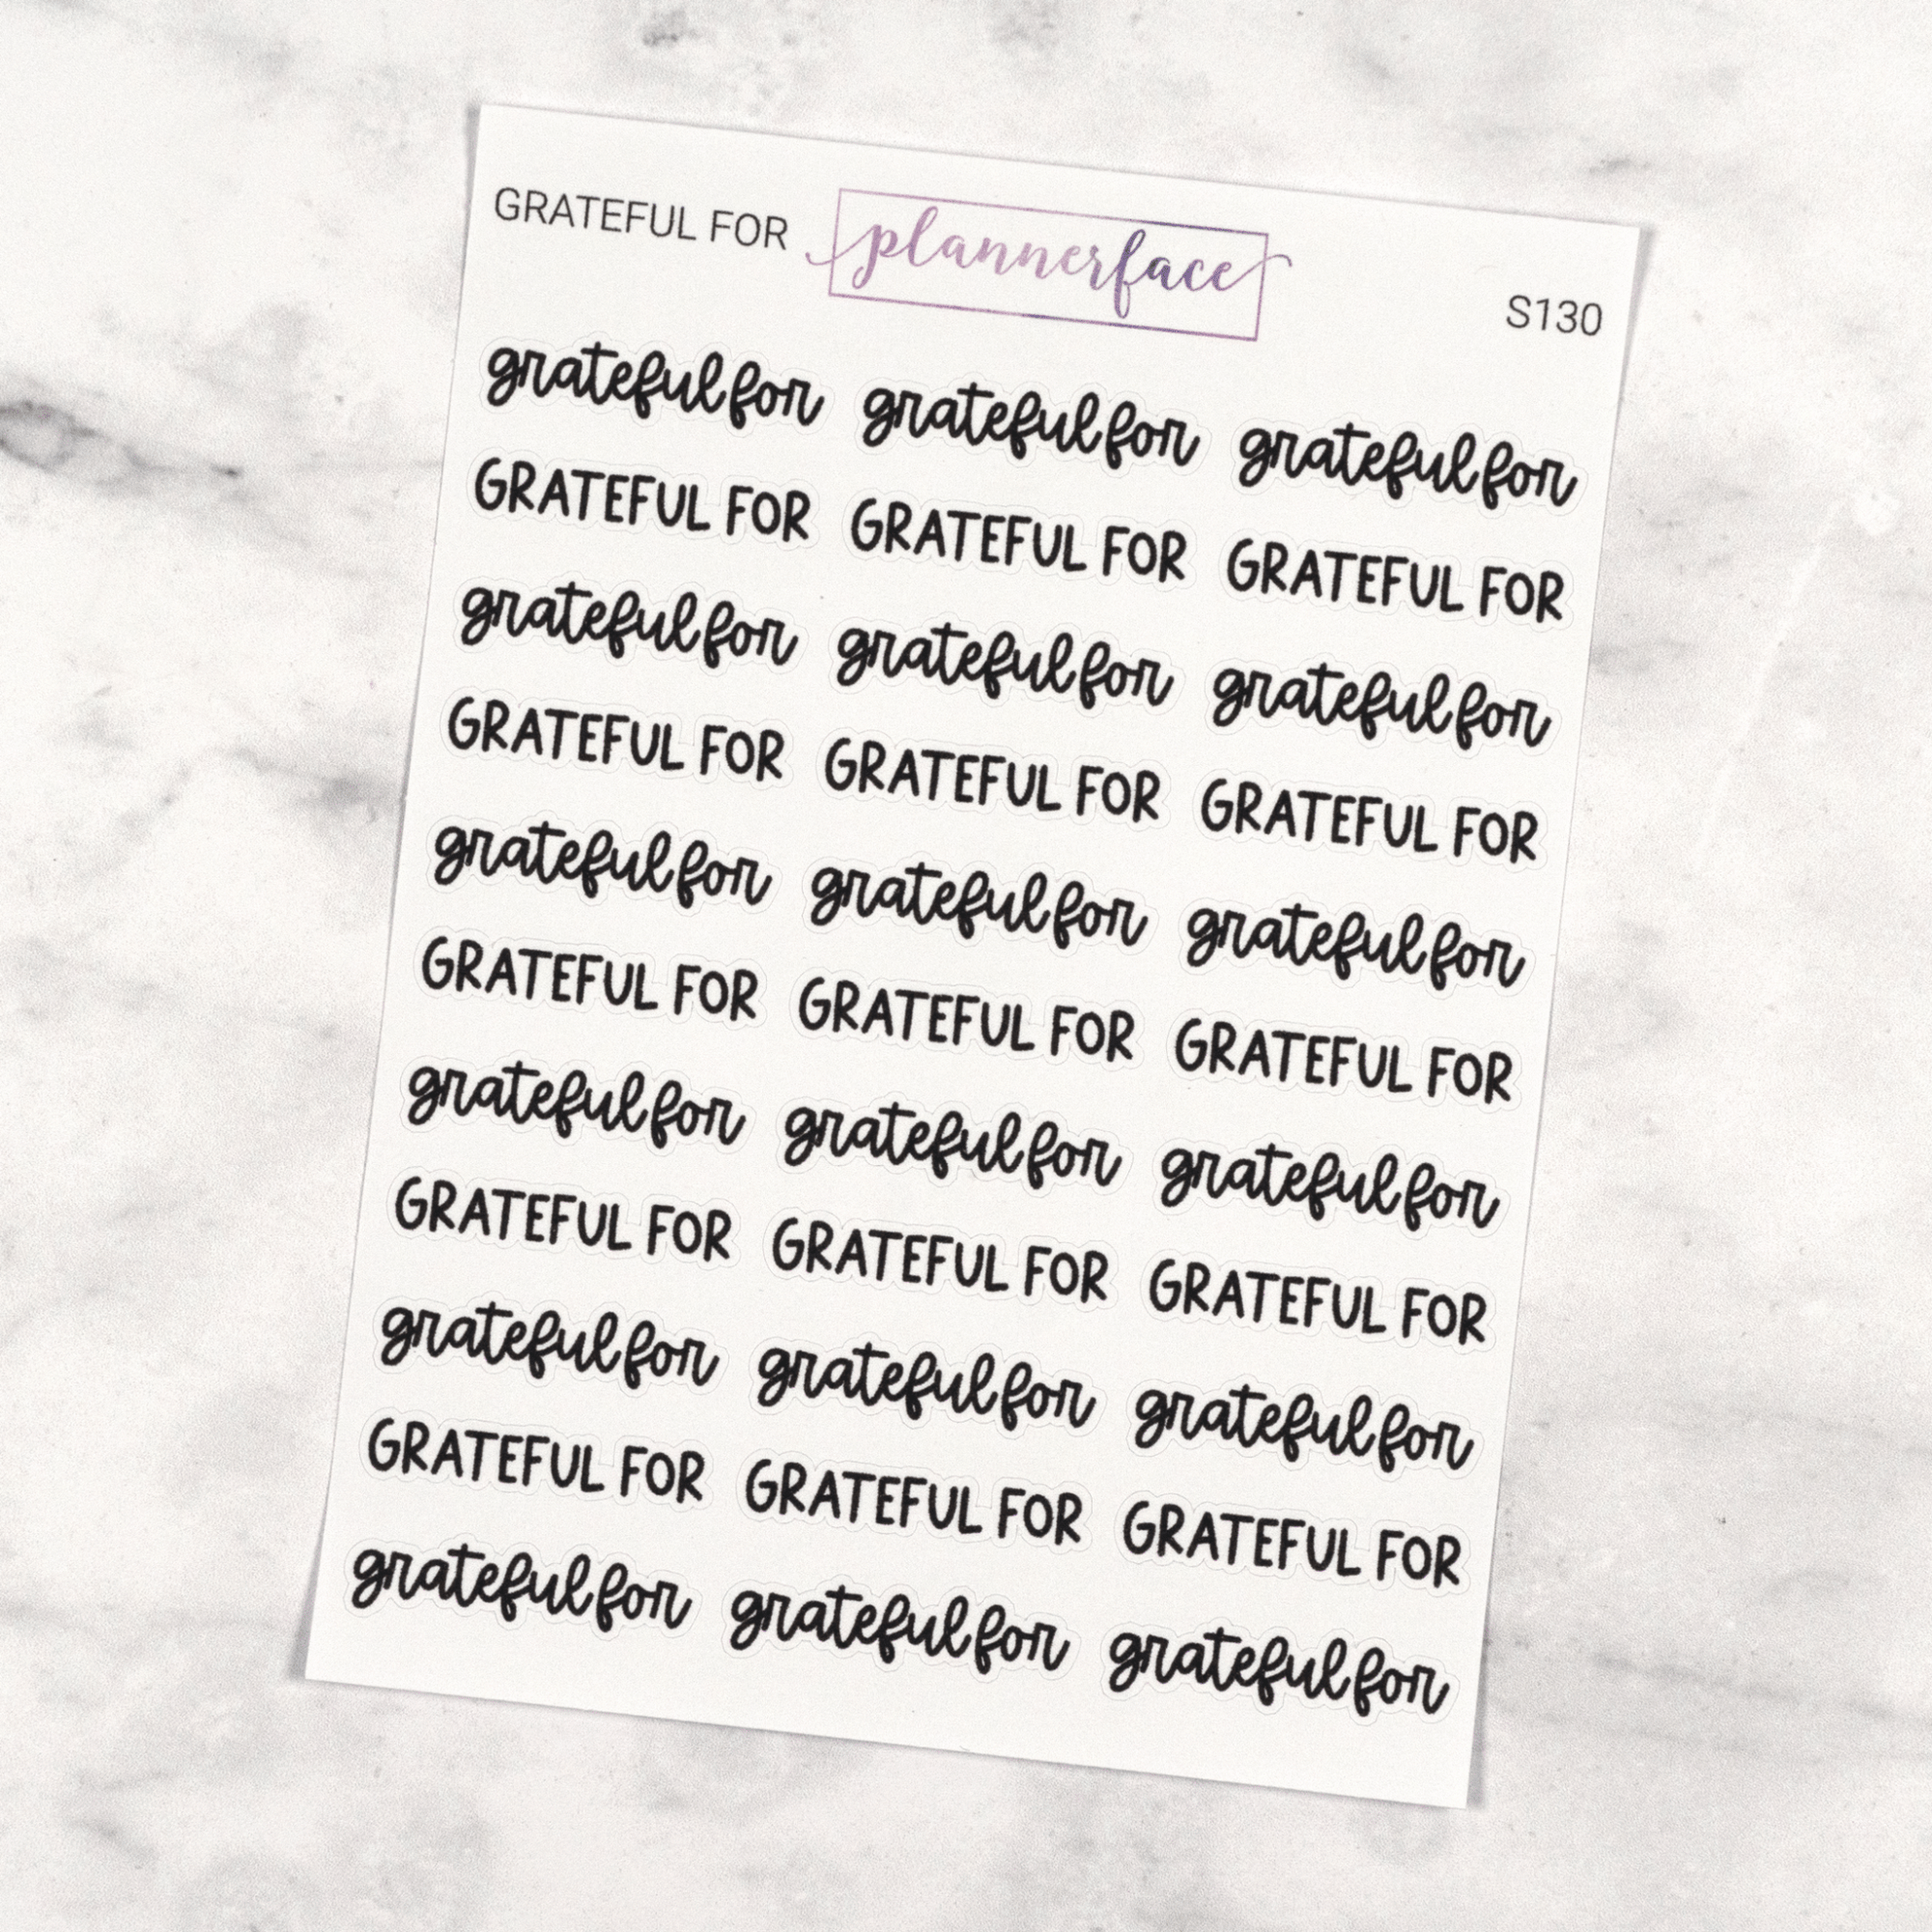 GRATEFUL FOR plannerface S130
grateful for grateful for grateful for
GRATEFUL FOR GRATEFUL FOR GRATEFUL FOR
grateful for grateful for grateful for
GRATEFUL FOR GRATEFUL FOR GRATEFUL FOR
grateful for grateful for grateful for
GRATEFUL FOR GRATEFUL FOR GRATEFUL FOR
grateful for grateful for grateful for
GRATEFUL FOR GRATEFUL FOR GRATEFUL FOR
grateful for grateful for grateful for
GRATEFUL FOR GRATEFUL FOR GRATEFUL FOR
grateful for grateful for grateful for